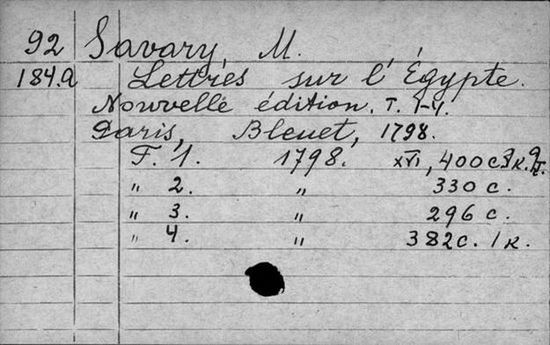 92 Savary, M.
184.a Lettres sur l'Égypte.
Nouvelle édition. T. 1-4.
Paris, Bleuet, 1798.
T. 1. 1798. XVI, 400 c. 3 к. 
" 2. " 330 c.
" 3. " 296 c.
" 4. " 382 c. 1 к.